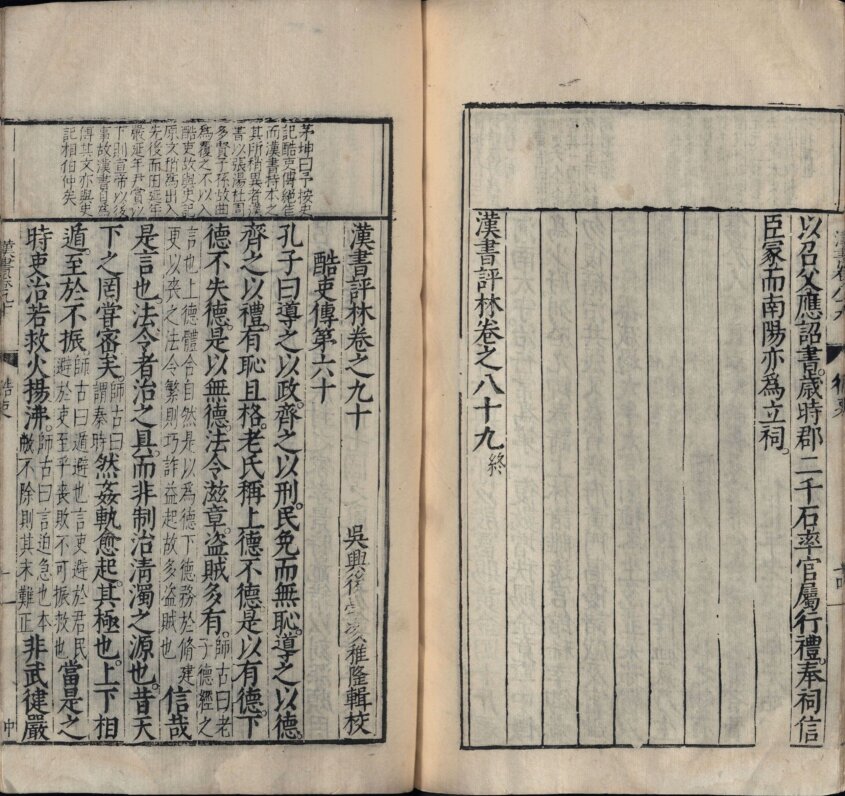 以召父應詔書。歲時郡二千石率官屬行禮。奉祠信
臣冢。而南陽亦爲立祠。
漢書評林卷之八十九終
茅坤曰予按史
記酷吏傳絕佳
而漢書特本之
其所稍異者漢
書以張湯杜周
多賢子孫故曲
為覆之不以入
酷吏故與史記
原文稍為出入
先後而田延年
嚴延年尹賞以
下則宣帝以後
事故漢書自為
傳其文亦與史
記相伯仲矣
漢書評林卷之九十
吳興後稚隆輯校
酷吏傳第六十
孔子曰導之以政。齊之以刑。民免而無恥。導之以德。
齊之以禮。有恥且格。老氏稱上德不德。是以有德。下
德不失德。是以無德。法令滋章。盜賊多有。師古曰老子德經之
言也上德體合自然是以為德下德務於脩建更以喪之法令繁則巧詐益起故多盜賊也信哉
是言也。法令者治之具。而非制治清濁之源也。昔天
下之罔嘗密矣。師古曰謂秦時然姦軌愈起。其極也。上下相
遁。至於不振。師古曰遁避也言吏避於君民避於吏至乎喪敗不可振救也當是之
時吏治若救火揚沸。師古曰言迫急也本敝不除則其末難正非武健嚴